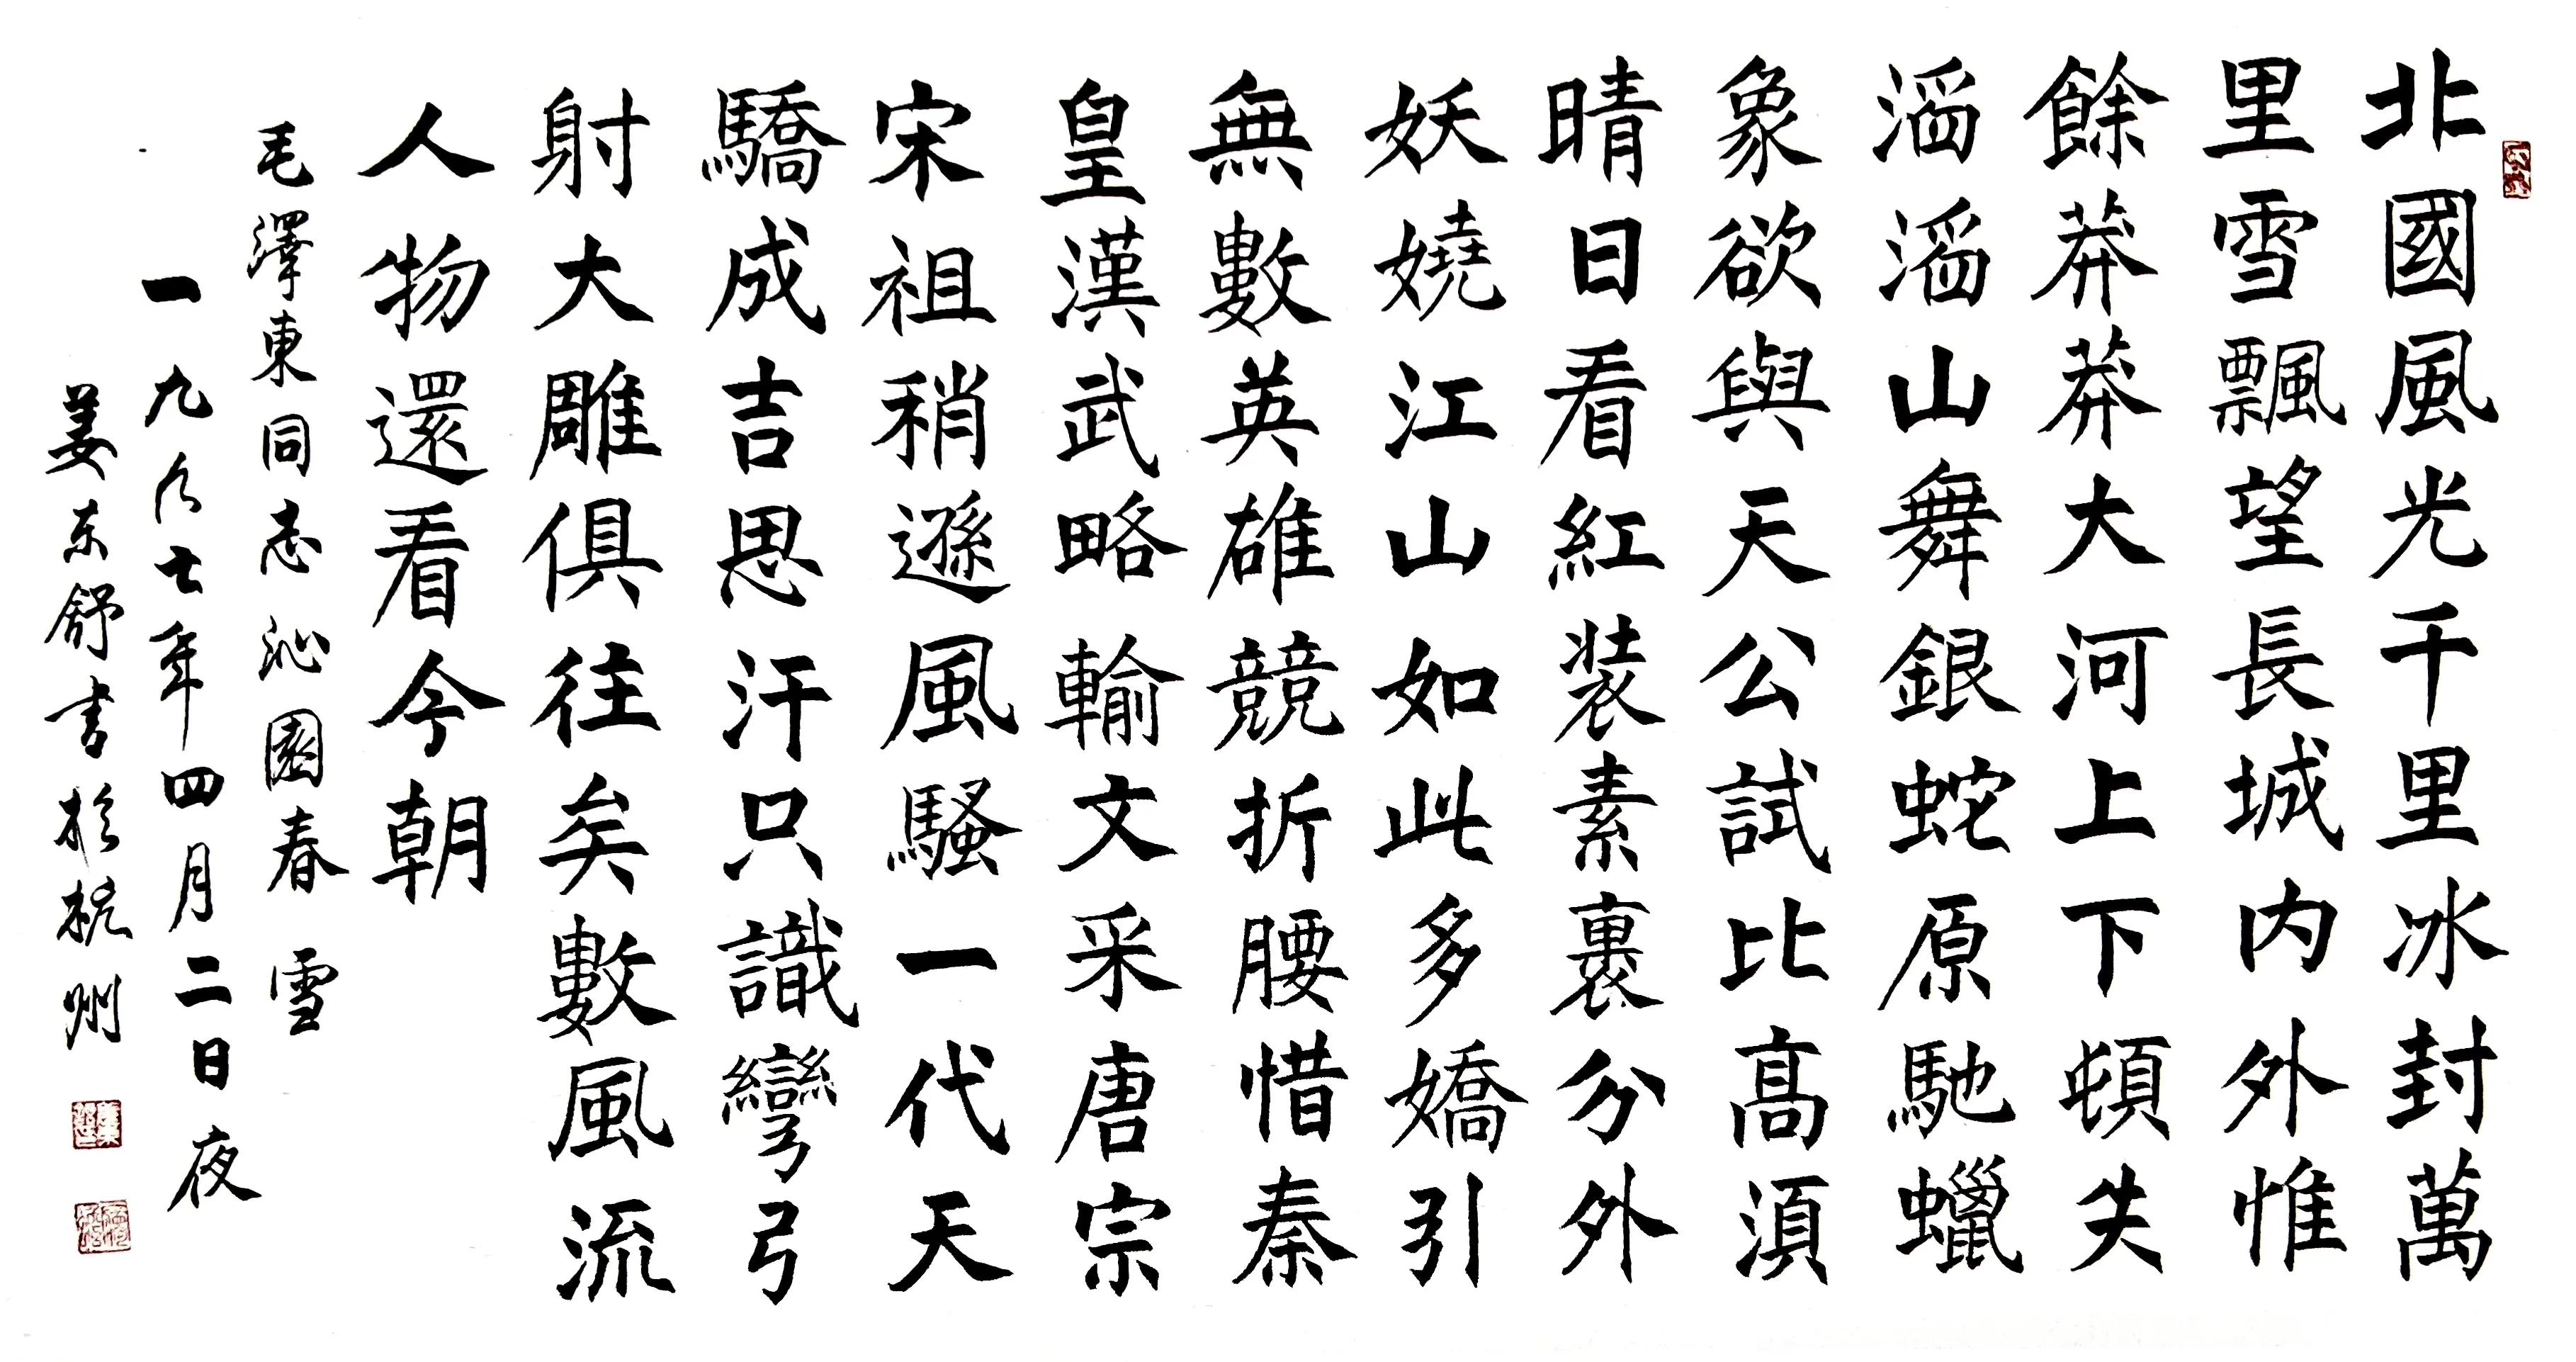 北國風光千里冰封萬
里雪飄望長城内外惟
餘莽莽大河上下頓失
滔滔山舞銀蛇原馳蠟
象欲與天公試比高須
晴日看紅装素裹分外
妖嬈江山如此多嬌引
無數英雄競折腰惜秦
皇漢武略輸文采唐宗
宋祖稍遜風騷一代天
驕成吉思汗只識彎弓
射大雕俱往矣數風流
人物還看今朝
毛澤東同志沁園春雪
一九八七年四月二日夜
姜东舒書於杭州